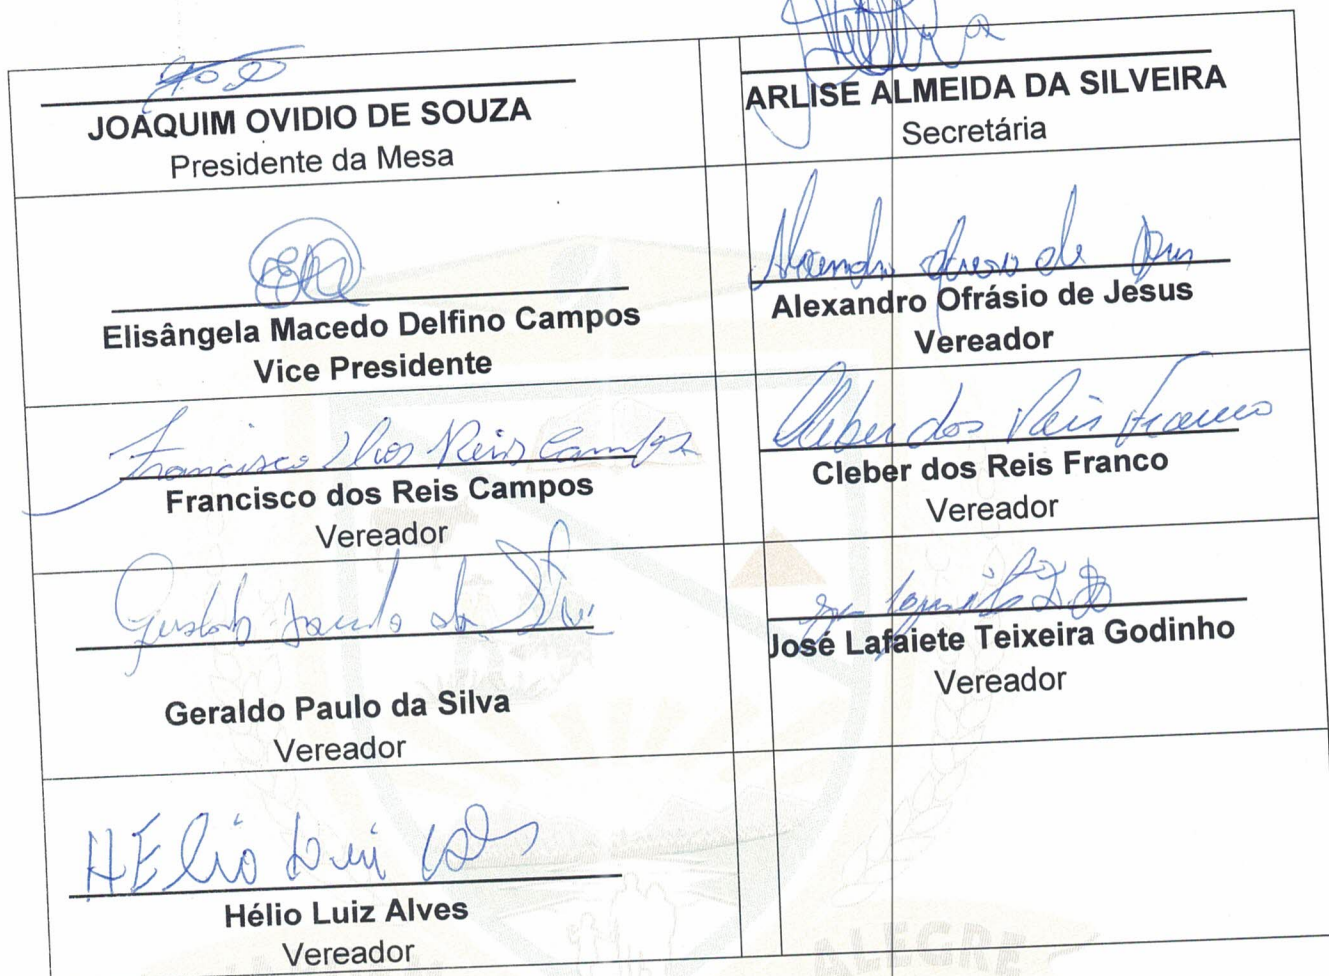 JOAQUIM OVIDIO DE SOUZA
Presidente da Mesa
ARLISE ALMEIDA DA SILVEIRA
Secretária
Elisângela Macedo Delfino Campos
Vice Presidente
Alexandro Ofrásio de Jesus
Vereador
Francisco dos Reis Campos
Francisco dos Reis Campos
Vereador
Cleber dos Reis Franco
Cleber dos Reis Franco
Vereador
Geraldo Paulo da Silva
Vereador
José Lafaiete Teixeira Godinho
Vereador
HÉlio Luiz
Hélio Luiz Alves
Vereador
ALEGRE